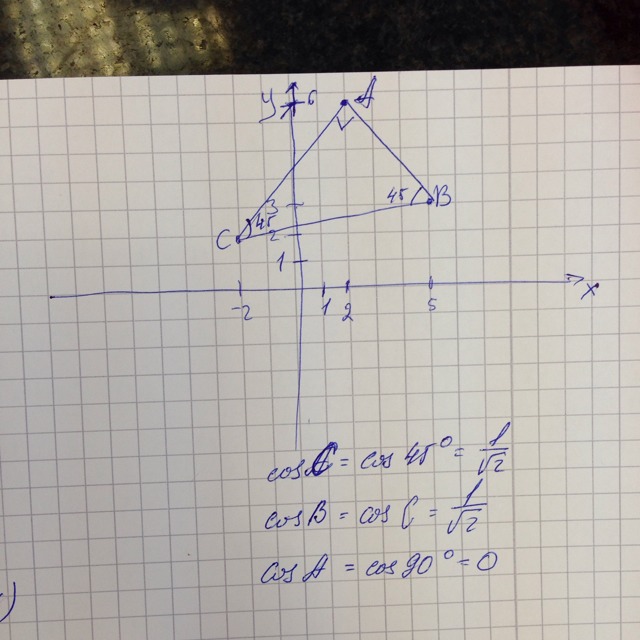 y 6 A
3 45 B
C 45
2
1
-2 1 2 5 x
cos C = cos 45° = 1/√2
cos B = cos C = 1/√2
cos A = cos 90° = 0
)